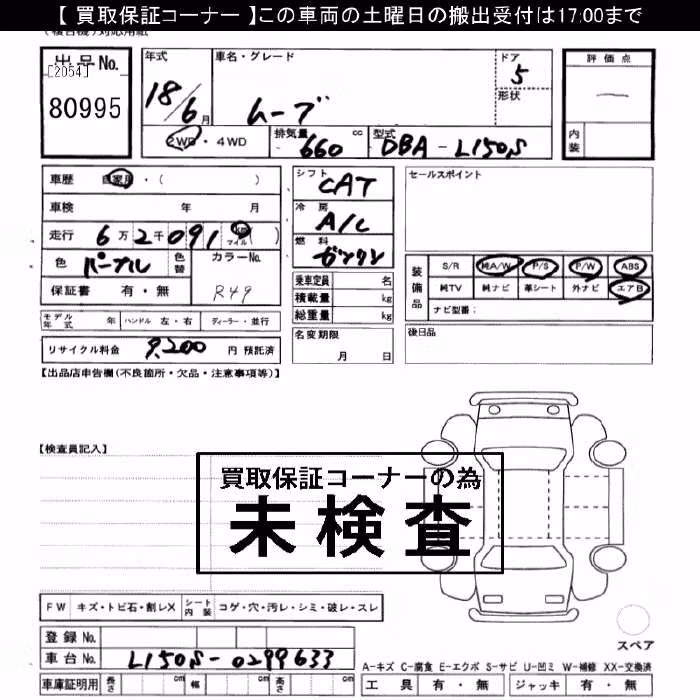 【 買取保証コーナー 】この車両の土曜日の搬出受付は17:00まで
出品No.
［2054］
80995
年式
18/6月
車名・グレード
ムーブ
ドア
5
形状
評価点
—
内装
2WD・4WD
排気量 660 cc
型式 DBA-L150S
車歴 自家用・( )
車検 年 月
走行 6万2千091 km マイル ( )
色 パープル 色替 カラーNo. R49
保証書 有・無
シフト CAT
冷房 A/C
燃料 ガソリン
乗車定員 名
積載量 kg
総重量 kg
セールスポイント
装備品
S/R 純A/W P/S P/W ABS
純TV 純ナビ 革シート 外ナビ エアB
ナビ型番：
モデル年式 年 ハンドル 左・右 ディーラー・並行
名変期限
月 日
後日品
リサイクル料金 9,200 円 預託済
【出品店申告欄(不良箇所・欠品・注意事項等)】
【検査員記入】
買取保証コーナーの為
未検査
FW キズ・トビ石・割レX シート内装 コゲ・穴・汚レ・シミ・破レ・スレ
登録No.
車台No. L150S-0299633
スペア
A-キズ C-腐食 E-エクボ S-サビ U-凹ミ W-補修 XX-交換済
車庫証明用 長さ cm 幅 cm 高さ cm
工具 有・無 ジャッキ 有・無